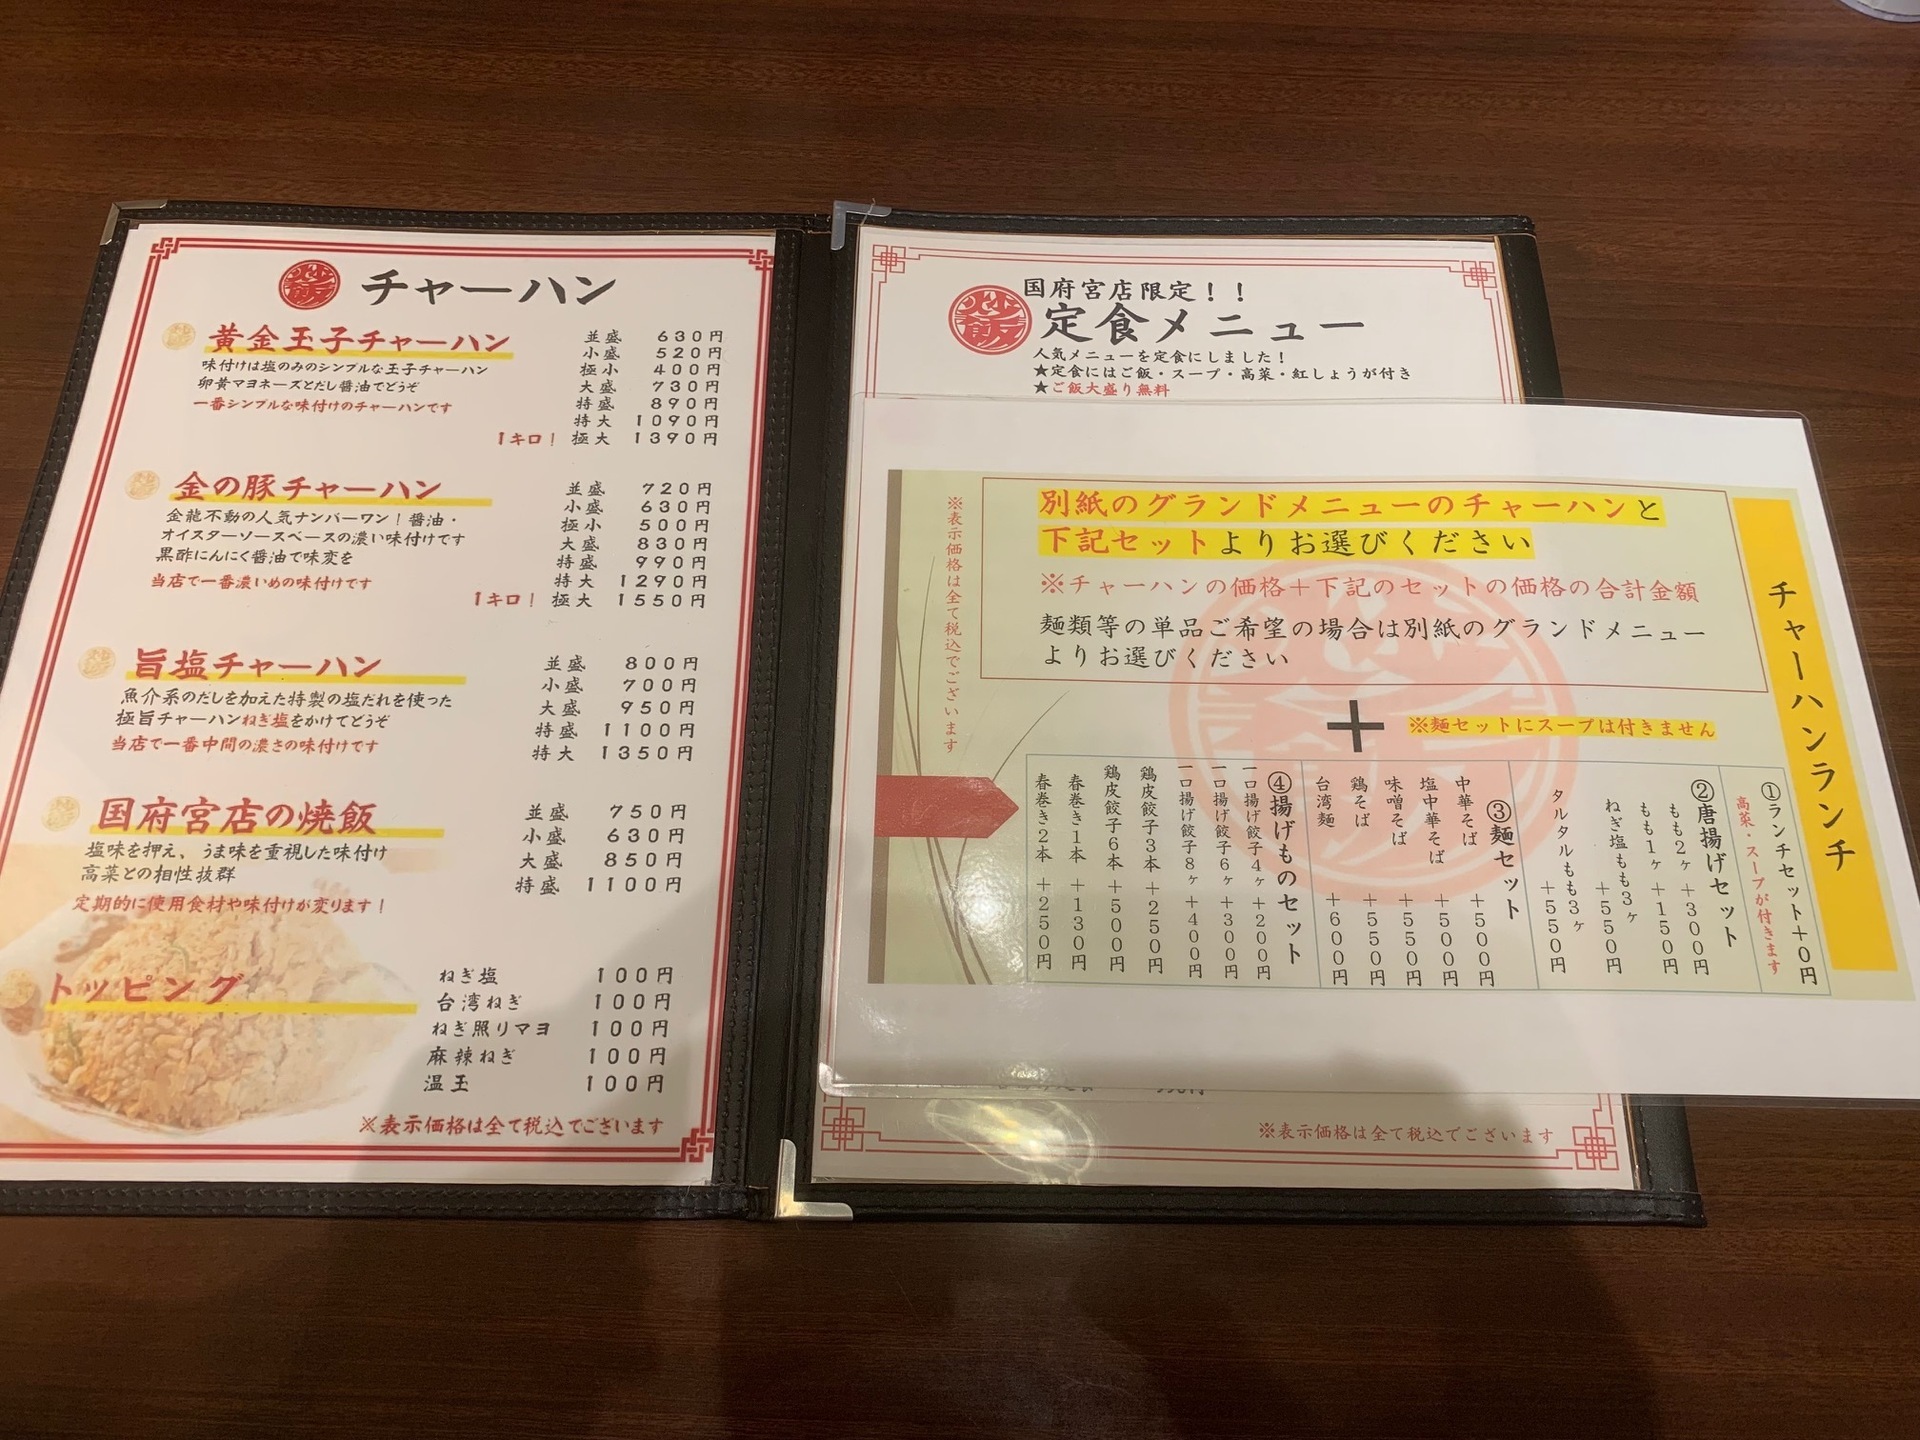 炒飯
チャーハン
黄金玉子チャーハン
味付けは塩のみのシンプルな玉子チャーハン
卵黄マヨネーズとだし醤油でどうぞ
一番シンプルな味付けのチャーハンです
並盛 630円
小盛 520円
極小 400円
大盛 730円
特盛 890円
特大 1090円
1キロ! 極大 1390円
金の豚チャーハン
金龍不動の人気ナンバーワン!醤油・
オイスターソースベースの濃い味付けです
黒酢にんにく醤油で味変を
当店で一番濃いめの味付けです
並盛 720円
小盛 630円
極小 500円
大盛 830円
特盛 990円
特大 1290円
1キロ! 極大 1550円
旨塩チャーハン
魚介系のだしを加えた特製の塩だれを使った
極旨チャーハンねぎ塩をかけてどうぞ
当店で一番中間の濃さの味付けです
並盛 800円
小盛 700円
大盛 950円
特盛 1100円
特大 1350円
国府宮店の焼飯
塩味を押え、うま味を重視した味付け
高菜との相性抜群
定期的に使用食材や味付けが変ります!
並盛 750円
小盛 630円
大盛 850円
特盛 1100円
トッピング
ねぎ塩 100円
台湾ねぎ 100円
ねぎ照りマヨ 100円
麻辣ねぎ 100円
温玉 100円
※表示価格は全て税込でございます
炒飯
国府宮店限定!!
定食メニュー
人気メニューを定食にしました!
★定食にはご飯・スープ・高菜・紅しょうが付き
★ご飯大盛り無料
チャーハンランチ
別紙のグランドメニューのチャーハンと
下記セットよりお選びください
※チャーハンの価格+下記のセットの価格の合計金額
麺類等の単品ご希望の場合は別紙のグランドメニュー
よりお選びください
※表示価格は全て税込でございます
+
※麺セットにスープは付きません
①ランチセット+0円
高菜・スープが付きます
②唐揚げセット
もも2ヶ +300円
もも1ヶ +150円
ねぎ塩もも3ヶ +550円
タルタルもも3ヶ +550円
③麺セット
中華そば +500円
塩中華そば +500円
味噌そば +550円
鶏そば +550円
台湾麺 +600円
④揚げものセット
一口揚げ餃子4ヶ +200円
一口揚げ餃子6ヶ +300円
一口揚げ餃子8ヶ +400円
鶏皮餃子3本 +250円
鶏皮餃子6本 +500円
春巻き1本 +130円
春巻き2本 +250円
※表示価格は全て税込でございます